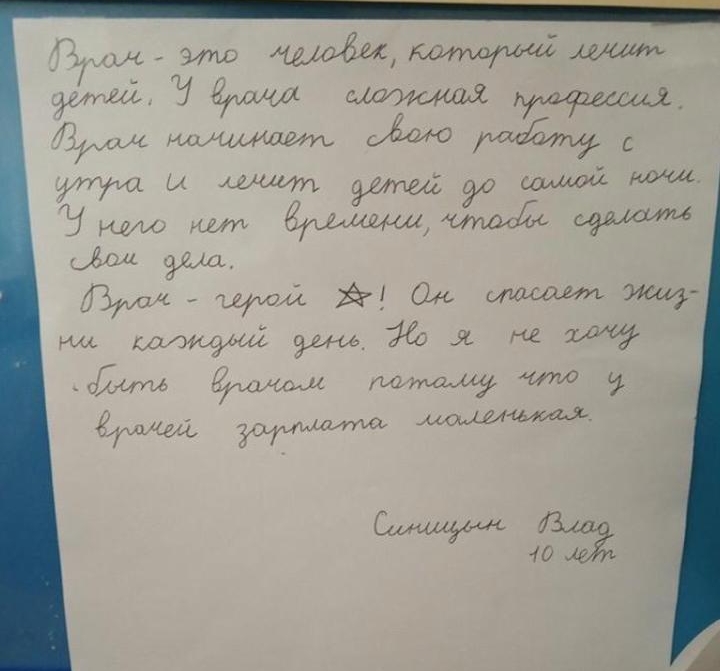 Врач - это человек, который лечит
детей. У врача сложная профессия.
Врач начинает свою работу с
утра и лечит детей до самой ночи.
У него нет времени, чтобы сделать
свои дела.
Врач - герой ☆! Он спасает жиз-
ни каждый день. Но я не хочу
быть врачом потому что у
врачей зарплата маленькая.
Синицын Влад
10 лет